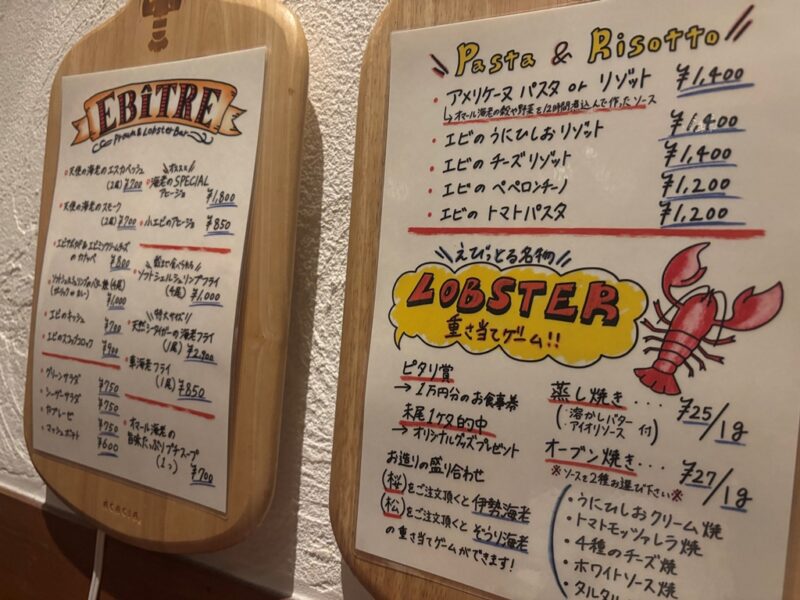 EBîTRE
Prawn & Lobster Bar
天使の海老のエスカベッシュ
(2尾) ¥700
天使の海老のスモーク
(2尾) ¥700
エビアボカド & エビとクリームチーズ
のカナッペ
¥800
(ガーリック or カレー)
¥1,000
・エビのキッシュ
¥700
・エビのスコップコロッケ
¥900
・グリーンサラダ
¥750
・シーザーサラダ
¥750
・カプレーゼ
¥750
・マッシュポテト
¥600
オススメ
・海老のSPECIAL
アヒージョ
¥1,800
・小エビのアヒージョ
¥850
殻まで食べられる
・ソフトシェルシュリンプフライ
(4尾) ¥1,000
特大サイズ
・天然シータイガーの海老フライ
(1尾) ¥2,900
・車海老フライ
(1尾) ¥850
・オマール海老の
旨味たっぷりプチスープ
(1つ) ¥700
ACACIA
Pasta & Risotto
・アメリケーヌ パスタ or リゾット ¥1,400
↳オマール海老の殻や野菜を12時間煮込んで作ったソース
・エビのうにひしおリゾット ¥1,400
・エビのチーズリゾット ¥1,400
・エビのペペロンチーノ ¥1,200
・エビのトマトパスタ ¥1,200
えびっとる名物
LOBSTER
重さ当てゲーム!!
ピタリ賞
→1万円分のお食事券
末尾1ケタ的中
→オリジナルグッズプレゼント
お造りの盛り合わせ
(桜)をご注文頂くと伊勢海老
(松)をご注文頂くとぞうり海老
の重さ当てゲームができます!
蒸し焼き・・・ ¥25/1g
(・溶かしバター
・アイオリソース 付)
オーブン焼き・・・ ¥27/1g
※ソースを2種お選び下さい※
・うにひしおクリーム焼
・トマトモッツァレラ焼
・4種のチーズ焼
・ホワイトソース焼
・タルタル